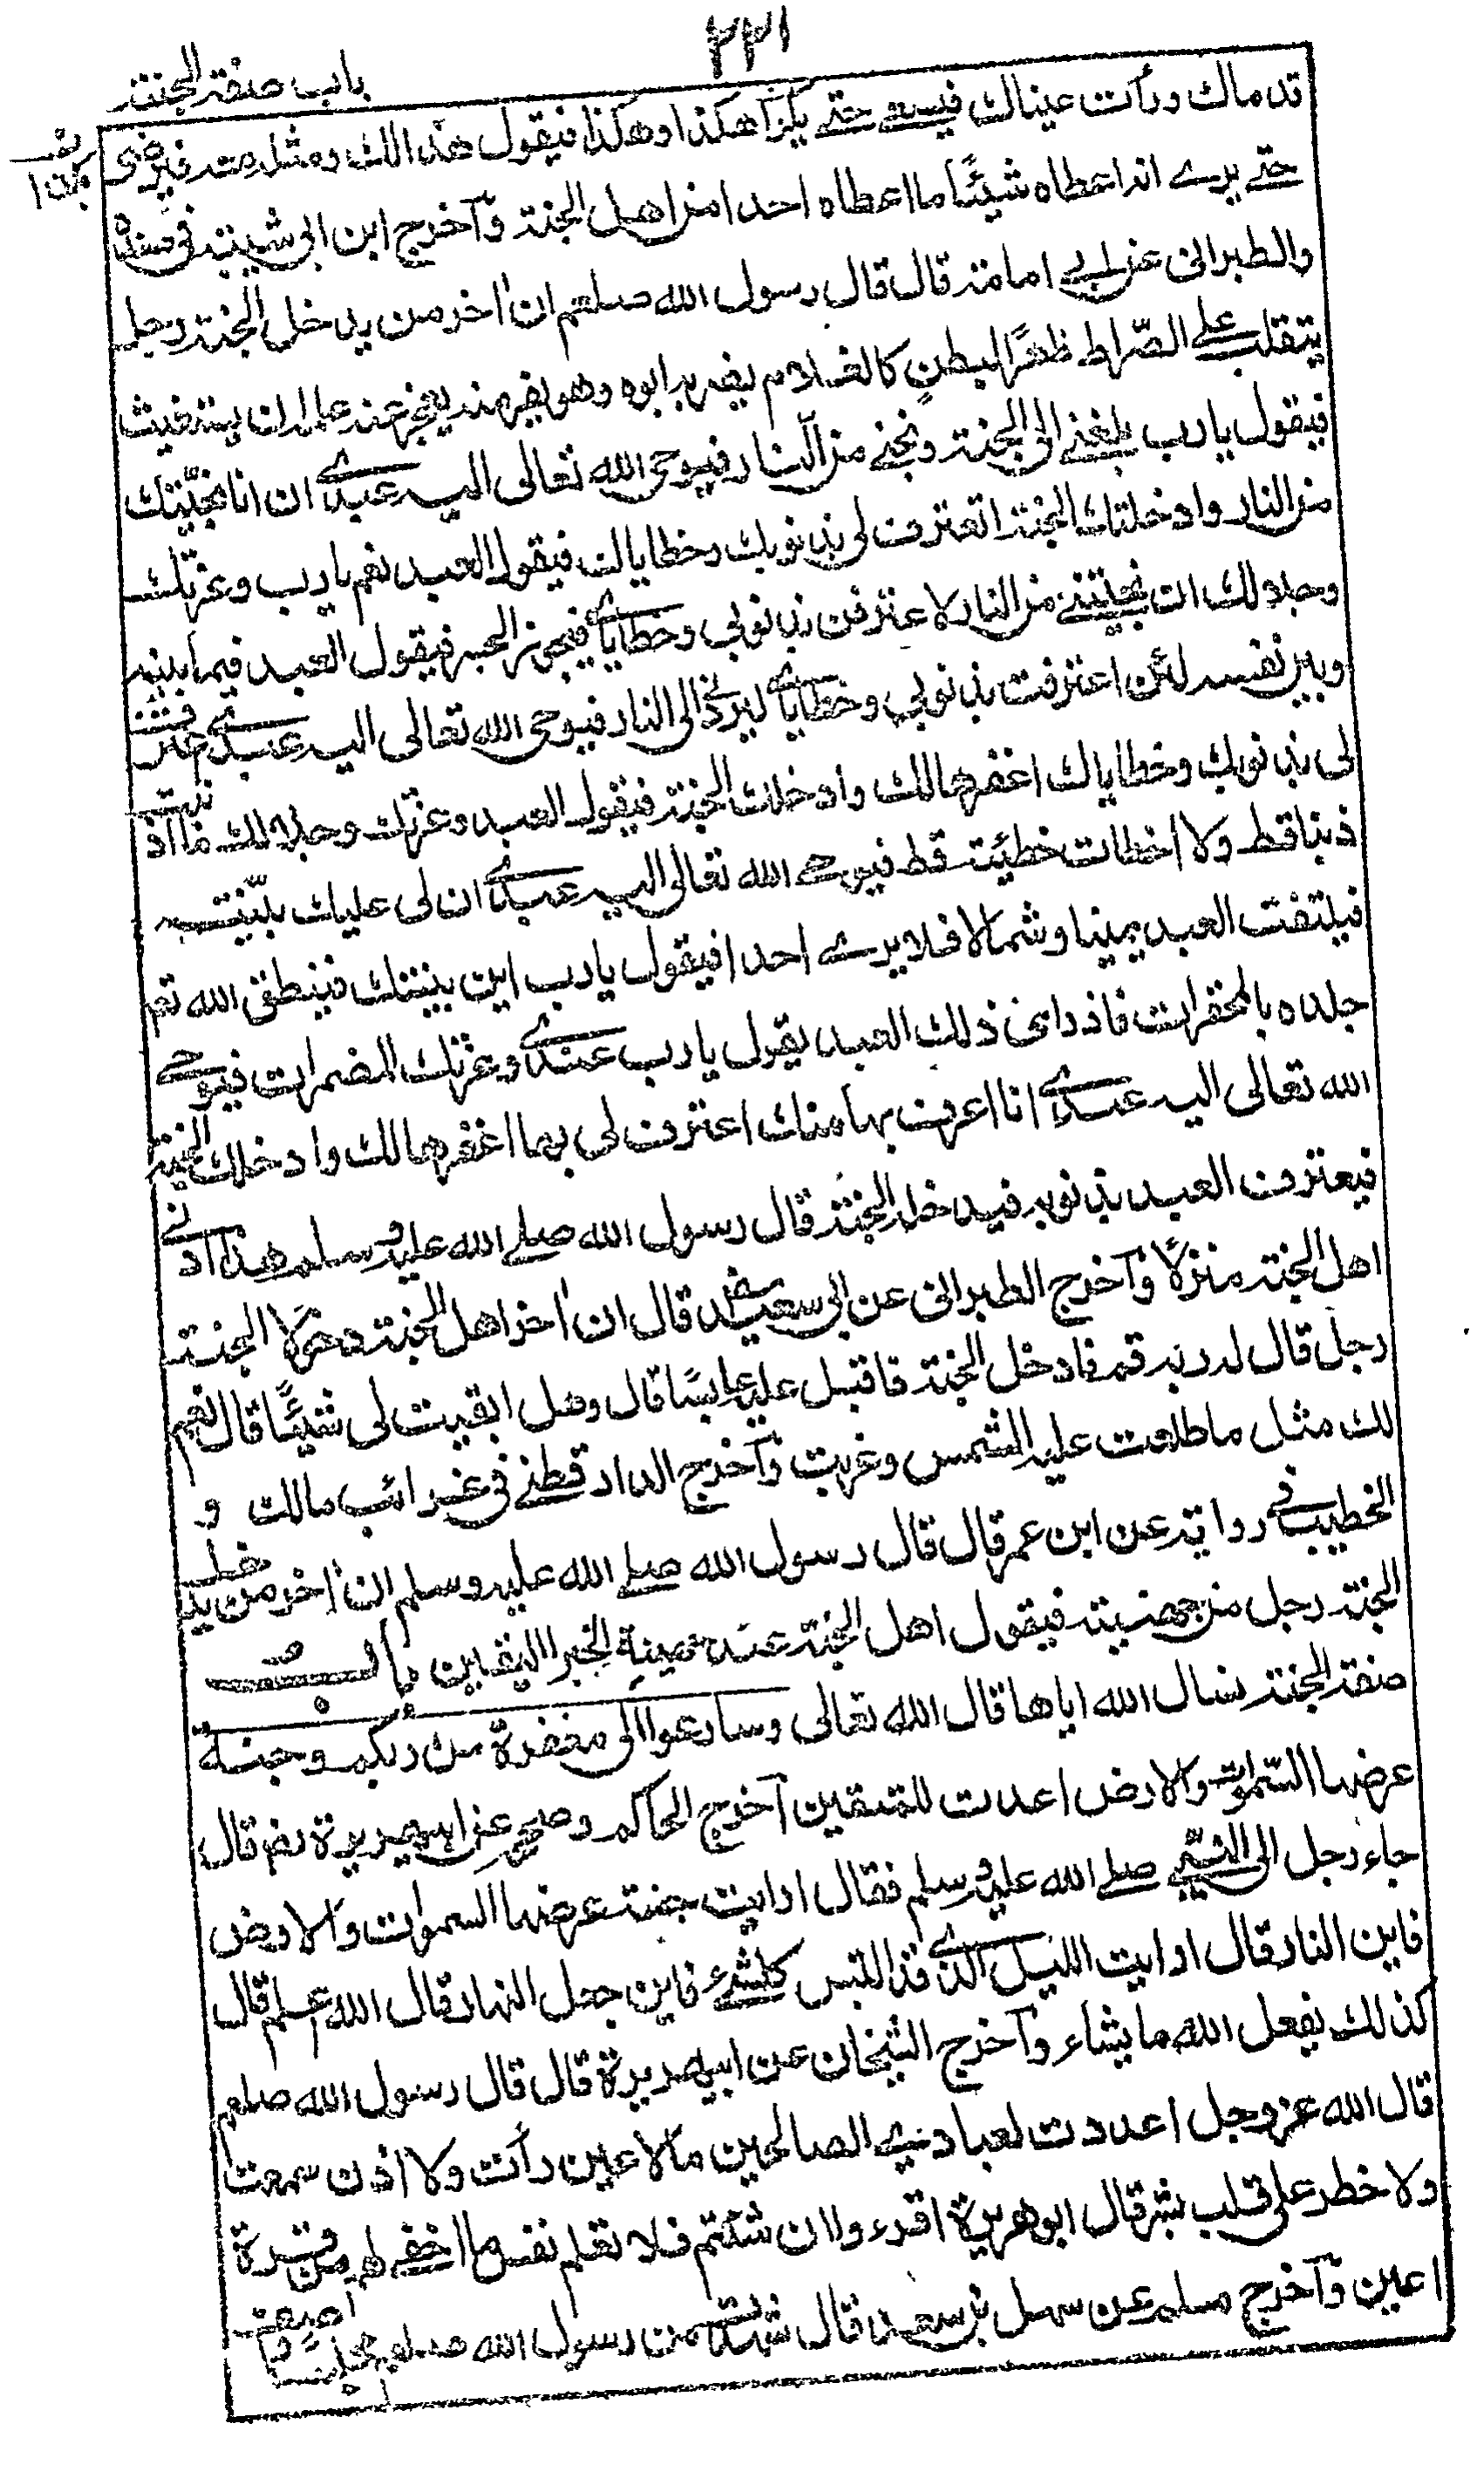 ٢٢١
باب صفة الجنة
قدماك ورأت عيناك فيسعى حتى يكزا هكذا وهكذا فيقول هذا لك ومثله معه فيرضى
حتى يرى انه اعطاه شيئًا ما اعطاه احدا من اهل الجنة وآخرج ابن ابى شيبة فى مسنده
والطبرانى عن ابى امامة قال قال رسول الله صلعم ان اخر من يدخل الجنة رجل
يتقلب على الصّراط ظهرًا لبطنٍ كالغلام يضربه ابوه وهو يفر منه يعجز عنه عمله ان يستغيث
فيقول يا رب بلغنى الى الجنة ونجنى من النار فيوحى الله تعالى اليه عبدى ان انا نجّيتك
من النار وادخلتك الجنة اتعترف لى بذنوبك وخطاياك فيقول العبد نعم يا رب وعزتك
وجلالك ان نجيتنى من النار لاعترفن بذنوبى وخطاياى فيجوز الجسر فيقول العبد فيما بينه
وبين نفسه لئن اعترفت بذنوبى وخطاياى ليردنى الى النار فيوحى الله تعالى اليه عبدى اعترف
لى بذنوبك وخطاياك اغفرها لك وادخلك الجنة فيقول العبد وعزتك وجلالك ما اذنبت
ذنبا قط ولا اخطات خطيئة قط فيوحى الله تعالى اليه عبدى ان لى عليك بيّنة
فيلتفت العبد يمينا وشمالا فلا يرى احدا فيقول يا رب اين بينتك فينطق الله تعم
جلده بالمحقرات فاذا راى ذلك العبد يقول يا رب عندى وعزتك المضمرات فيوحى
الله تعالى اليه عبدى انا اعرف بها منك اعترف لى بها اغفرها لك وادخلك الجنة
فيعترف العبد بذنوبه فيدخل الجنة قال رسول الله صلى الله عليه وسلم هذا ادنى
اهل الجنة منزلًا وآخرج الطبرانى عن ابى سعيد رض قال ان اخر اهل الجنة دخولا الجنة
رجل قال له ربه قم فادخل الجنة فاقبل عليه عابسًا قال وهل ابقيت لى شيئًا قال نعم
لك مثل ما طلعت عليه الشمس وغربت وآخرج الدارقطنى فى غرائب مالك و
الخطيب فى رواية عن ابن عمر قال قال رسول الله صلى الله عليه وسلم ان اخر من يدخل
الجنة رجل من جهينة فيقول اهل الجنة عند جهينةِ الخبر اليقين باب
صفة الجنة نسال الله اياها قال الله تعالى وسارعوا الى مغفرة من ربكم وجنة
عرضها السّموات والارض اعدت للمتقين آخرج الحاكم وصححه عن ابى هريرة رض قال
جاء رجل الى النبى صلى الله عليه وسلم فقال ارايت جنة عرضها السموات والارض
فاين النار قال ارايت الليل الذى قد البس كل شىء فاين جعل النهار قال الله اعلم قال
كذلك يفعل الله ما يشاء وآخرج الشيخان عن ابى هريرة قال قال رسول الله صلعم
قال الله عز وجل اعددت لعبادى الصالحين ما لا عين رأت ولا اذن سمعت
ولا خطر على قلب بشر قال ابو هريرة اقرءوا ان شئتم فلا تعلم نفس ما اخفى لهم من قرة
اعين وآخرج مسلم عن سهل بن سعد قال شهدت من رسول الله صلعم مجلسًا وصف